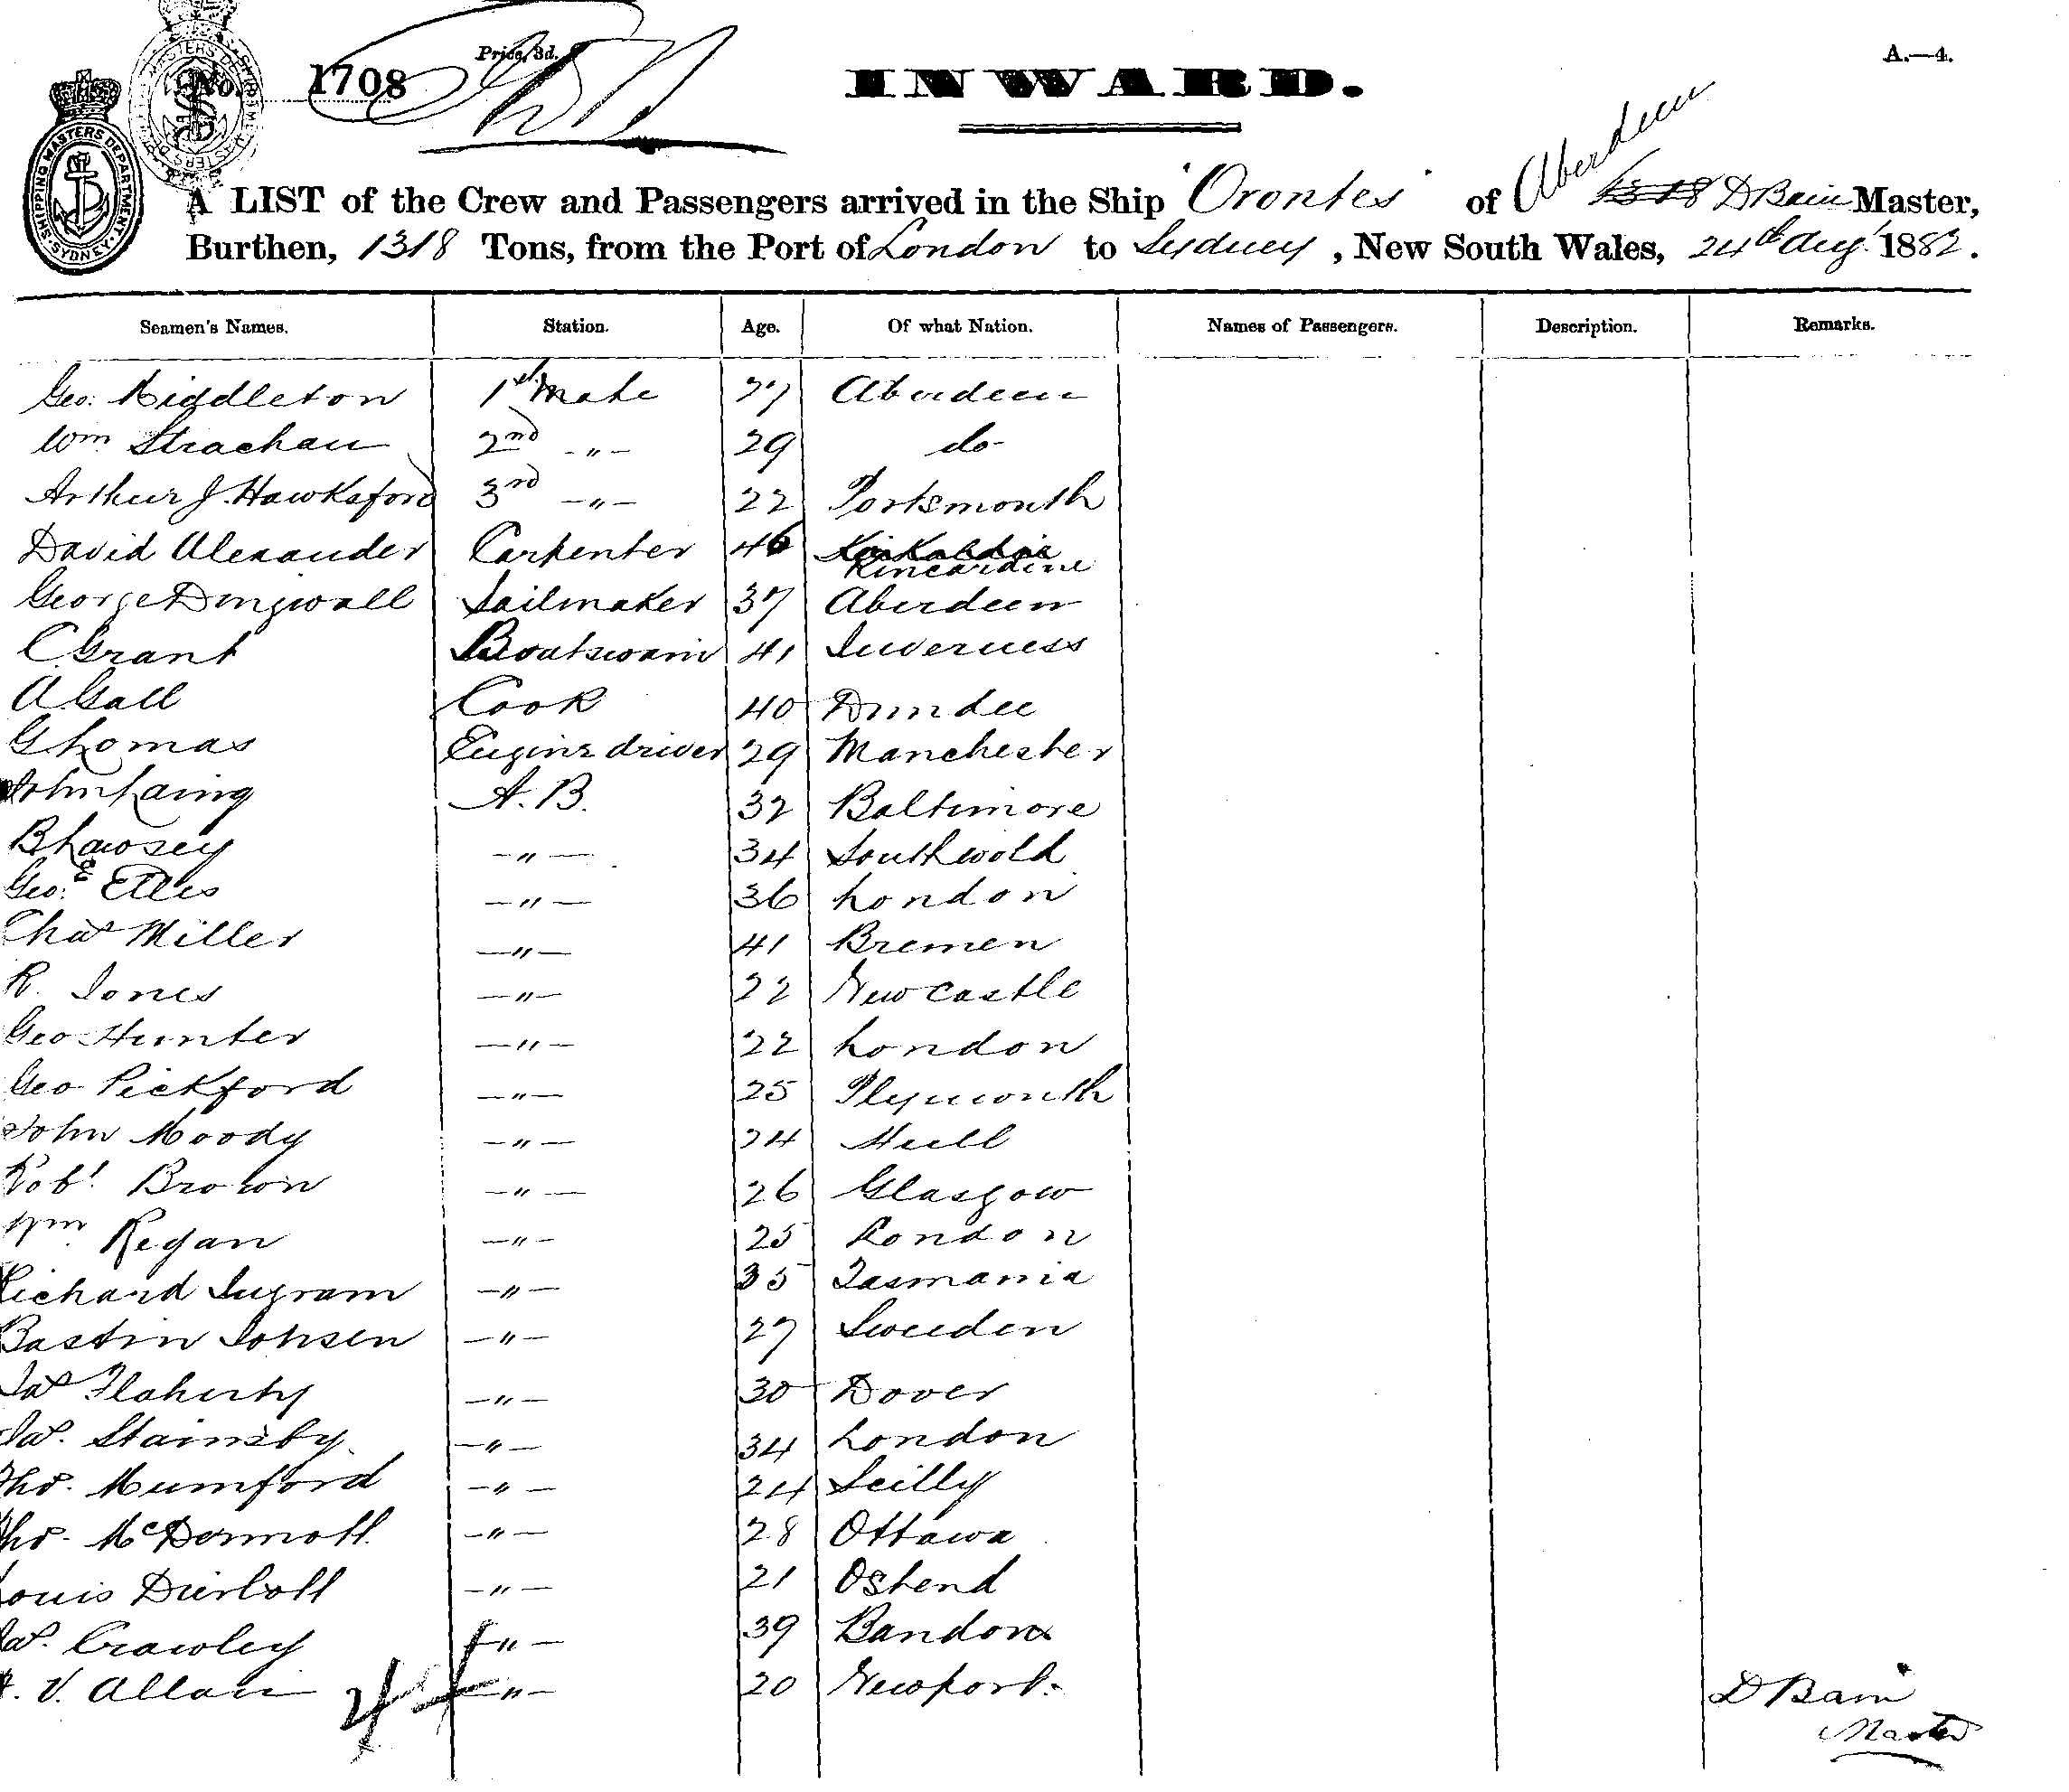 Price, 3d.
A.—4.
No. 1708
INWARD.
SHIPPING MASTERS DEPARTMENT SYDNEY
A LIST of the Crew and Passengers arrived in the Ship "Orontes" of Aberdeen 1318 D Bain Master,
Burthen, 1318 Tons, from the Port of London to Sydney, New South Wales, 24th Aug. 1882.
Seamen's Names. Station. Age. Of what Nation. Names of Passengers. Description. Remarks.
Geo. Middleton 1st Mate 27 Aberdeen
Wm Strachan 2nd -"- 29 do
Arthur J. Hawksford 3rd -"- 22 Portsmouth
David Alexander Carpenter 46 Kincardine
George Dingwall Sailmaker 37 Aberdeen
C Grant Boatswain 41 Inverness
A Gall Cook 40 Dundee
G Thomas Engine driver 29 Manchester
John Laing A.B. 32 Baltimore
B Lawsey -"- 34 Southwold
Geo. E Ellis -"- 36 London
Chas Miller -"- 41 Bremen
R. Jones -"- 22 Newcastle
Geo Hunter -"- 22 London
Geo Pickford -"- 25 Plymouth
John Moody -"- 24 Hull
Robt Brown -"- 26 Glasgow
Wm Regan -"- 25 London
Richard Ingram -"- 35 Tasmania
Bastin Johsen -"- 27 Sweden
Jas Flaherty -"- 30 Dover
Jas. Stainsby -"- 34 London
Thos. Mumford -"- 24 Scilly
Thos. McDermott -"- 28 Ottawa
Louis -"- 21 Ostend
Jas. Crawley -"- 39 Bandon
V. Allan -"- 20 Newport. D Bain
Master